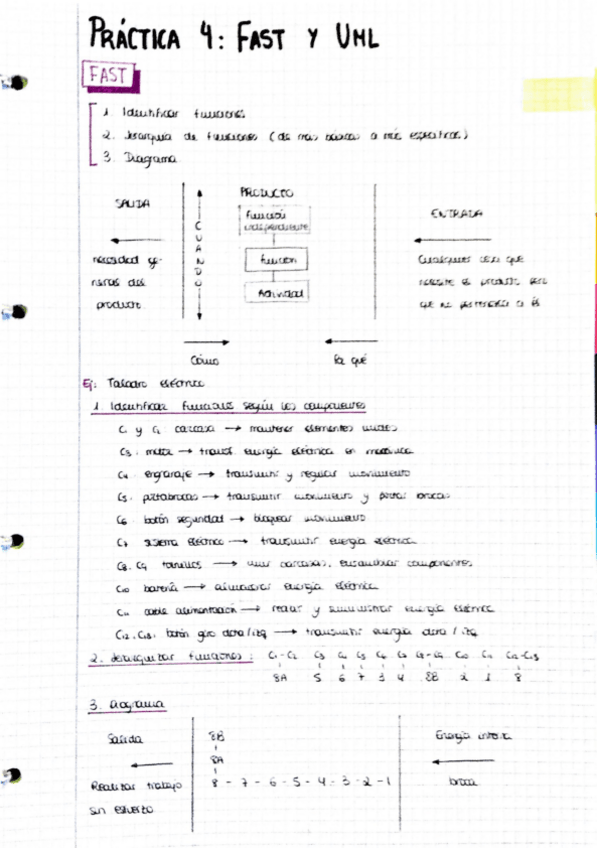 PRÁCTICA 4: FAST Y UML
FAST
1. Identificar funciones
2. Jerarquía de funciones (de más básicas a más específicas)
3. Diagrama
SALIDA
PRODUCTO
ENTRADA
CUANDO
función independiente
función
Actividad
necesidad ge-
neral del
producto.
Cualquier cosa que
necesite el producto pero
que no pertenezca a él
Cómo
Por qué
Ej: Taladro eléctrico
1. Identificar funciones según los componentes
C1 y C2 carcasa → mantener elementos unidos
C3: motor → transf. energía eléctrica en mecánica
C4: engranaje → transmitir y regular movimiento
C5: portabrocas → transmitir movimiento y portar brocas
C6: botón seguridad → bloquear movimiento
C7: sistema eléctrico → transmitir energía eléctrica
C8, C9 tornillos → unir carcasas, ensamblar componentes
C10 batería → almacenar energía eléctrica
C11 cable alimentación → recibir y suministrar energía eléctrica
C12, C13: botón giro dcha/izq → transmitir energía dcha/izq
2. Jerarquizar funciones: C1-C2 C3 C4 C5 C6 C7 C8-C9 C10 C11 C12-C13
8A 5 6 7 3 4 8B 2 1 8
3. Diagrama
Salida
8B
8A
8 - 7 - 6 - 5 - 4 - 3 - 2 - 1
Energía
broca
Realizar trabajo
sin esfuerzo